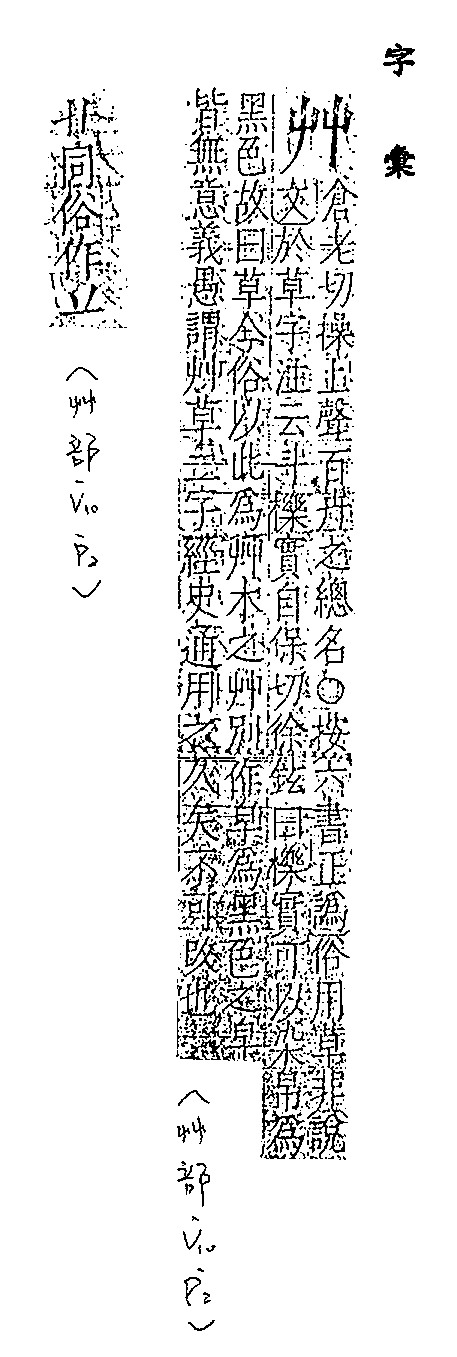 字彙
艸 倉老切操上聲百卉之總名○按六書正譌俗用草非說
文於草字注云斗櫟實自保切徐鉉曰櫟實可以染帛為
黑色故曰草今俗以此為艸木之艸別作皁為黑色之皁
皆無意義愚謂艸草二字經史通用之久矣不可改也
〈艸部 V10 P2〉
同俗作
〈艸部 V10 P2〉